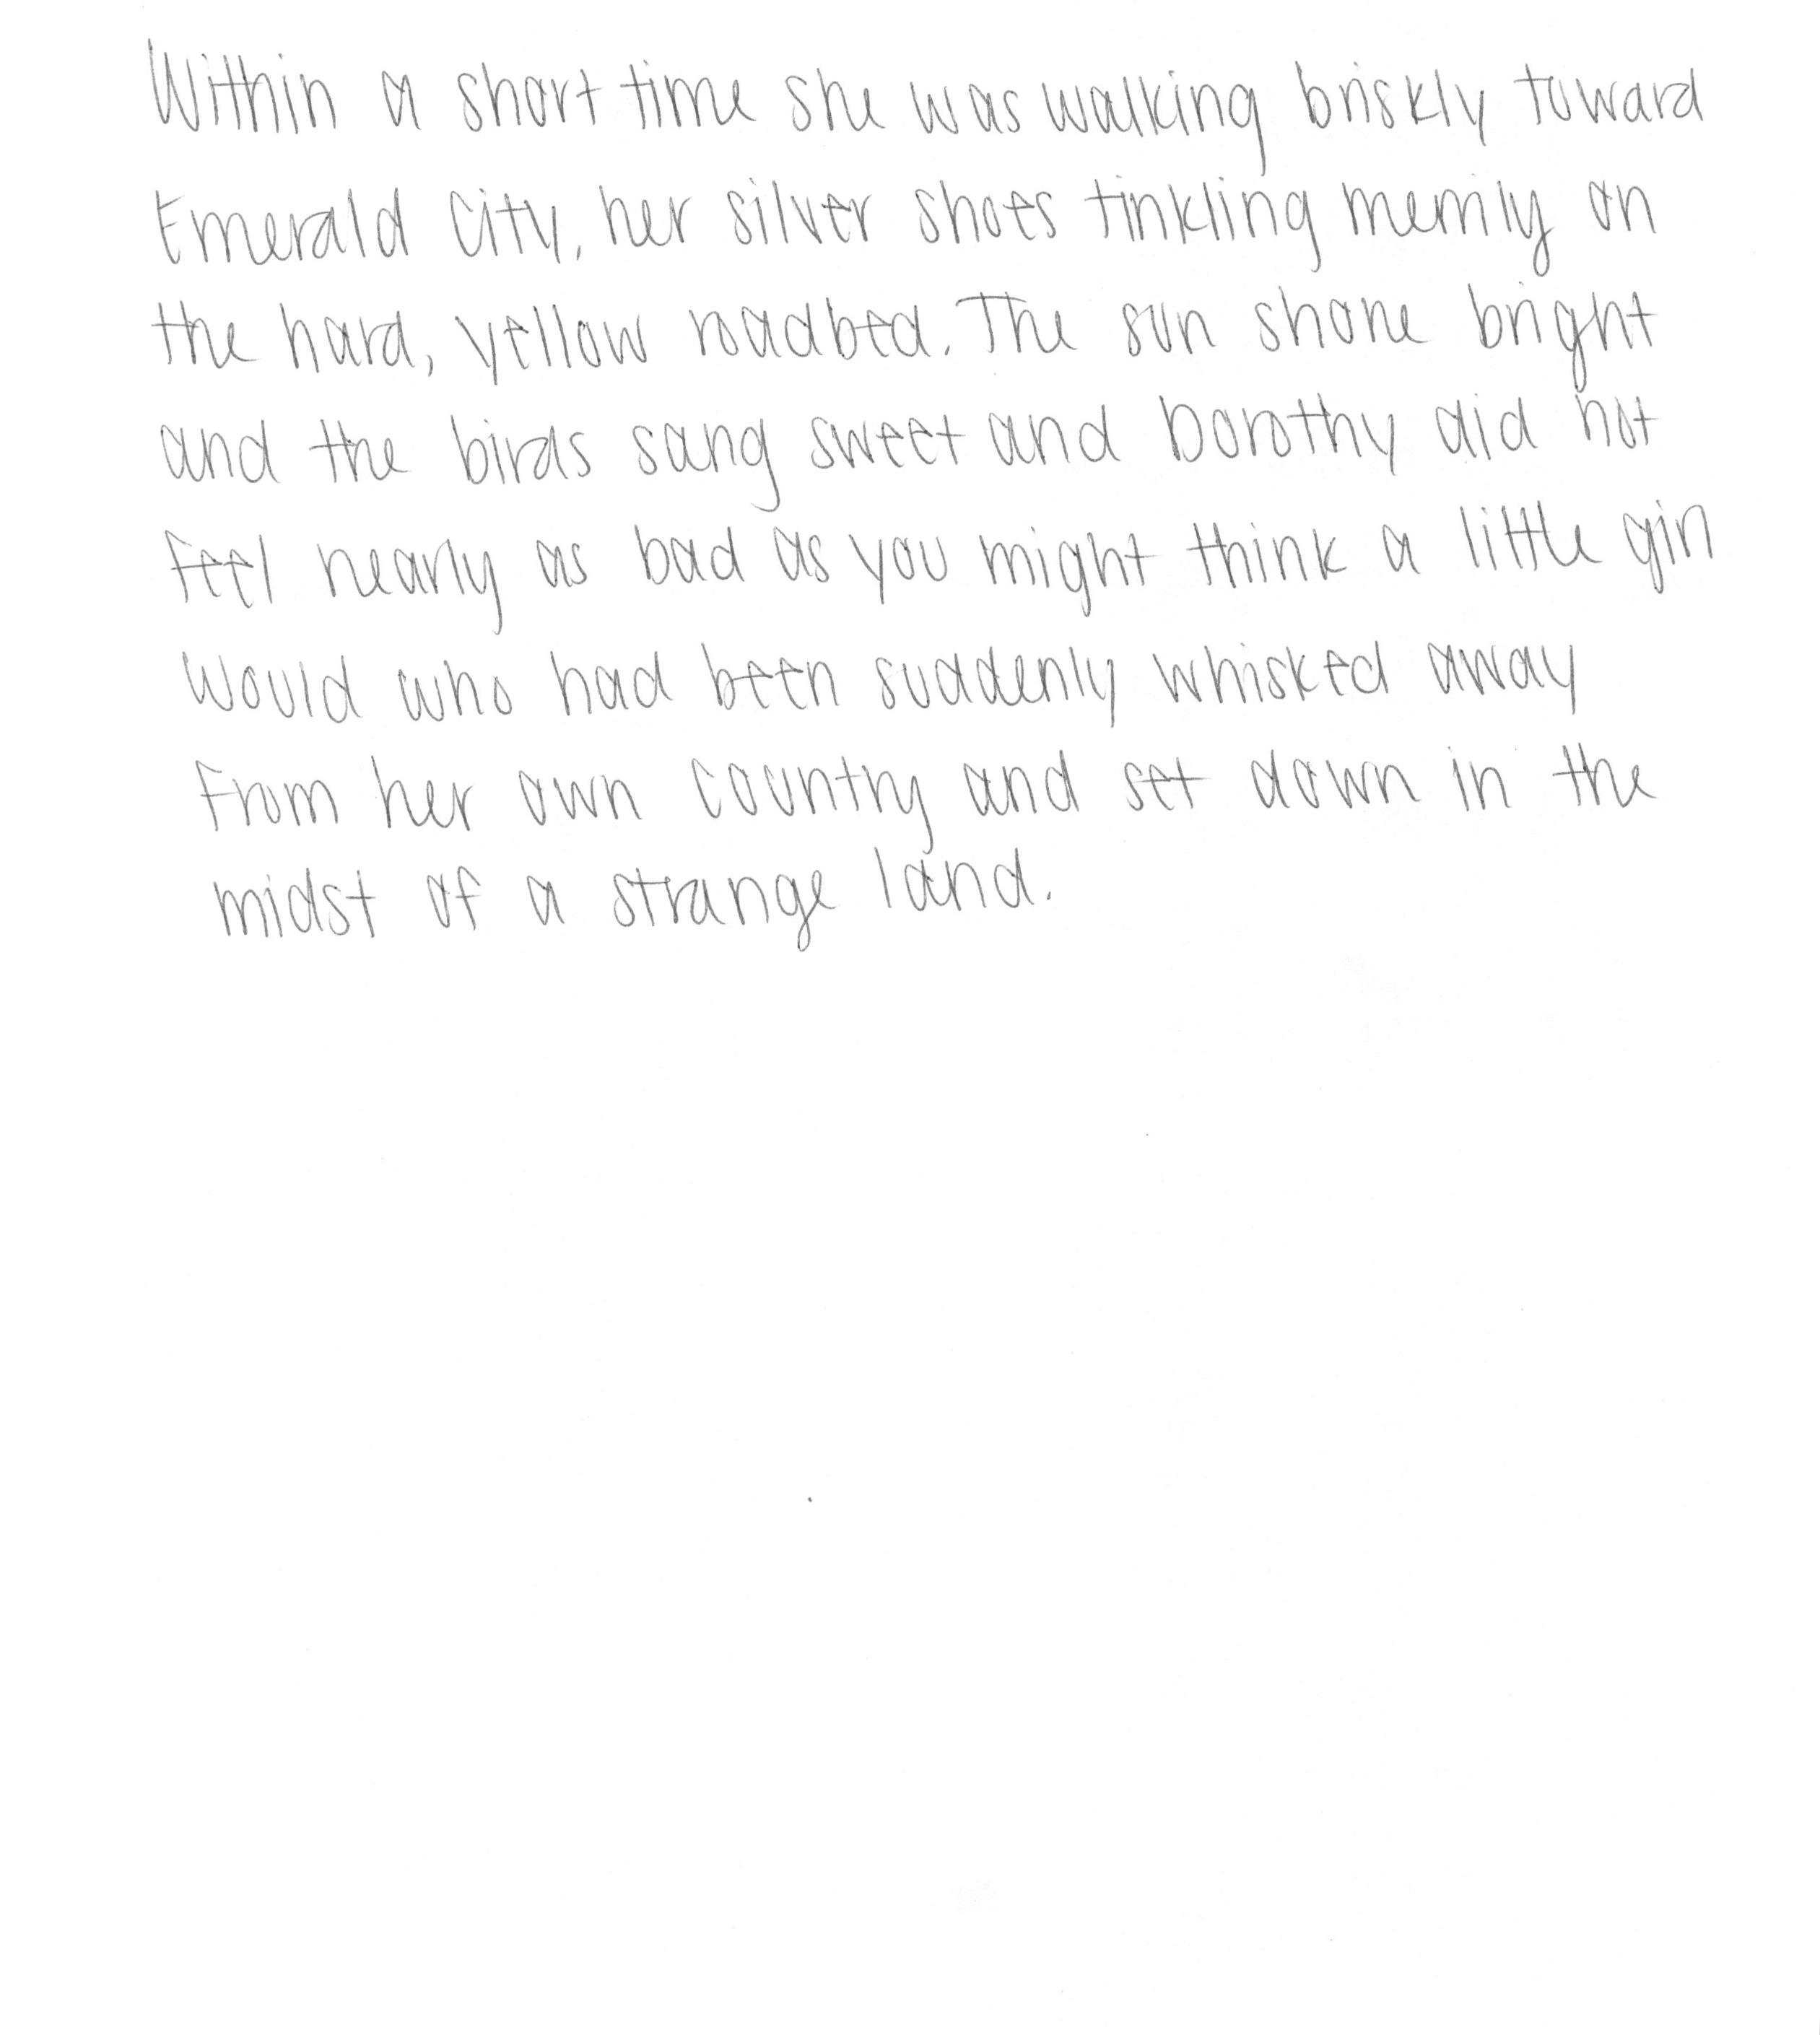 Within a short time she was walking briskly toward
Emerald City, her silver shoes tinkling merrily on
the hard, yellow roadbed. The sun shone bright
and the birds sang sweet and Dorothy did not
feel nearly as bad as you might think a little girl
would who had been suddenly whisked away
from her own country and set down in the
midst of a strange land.